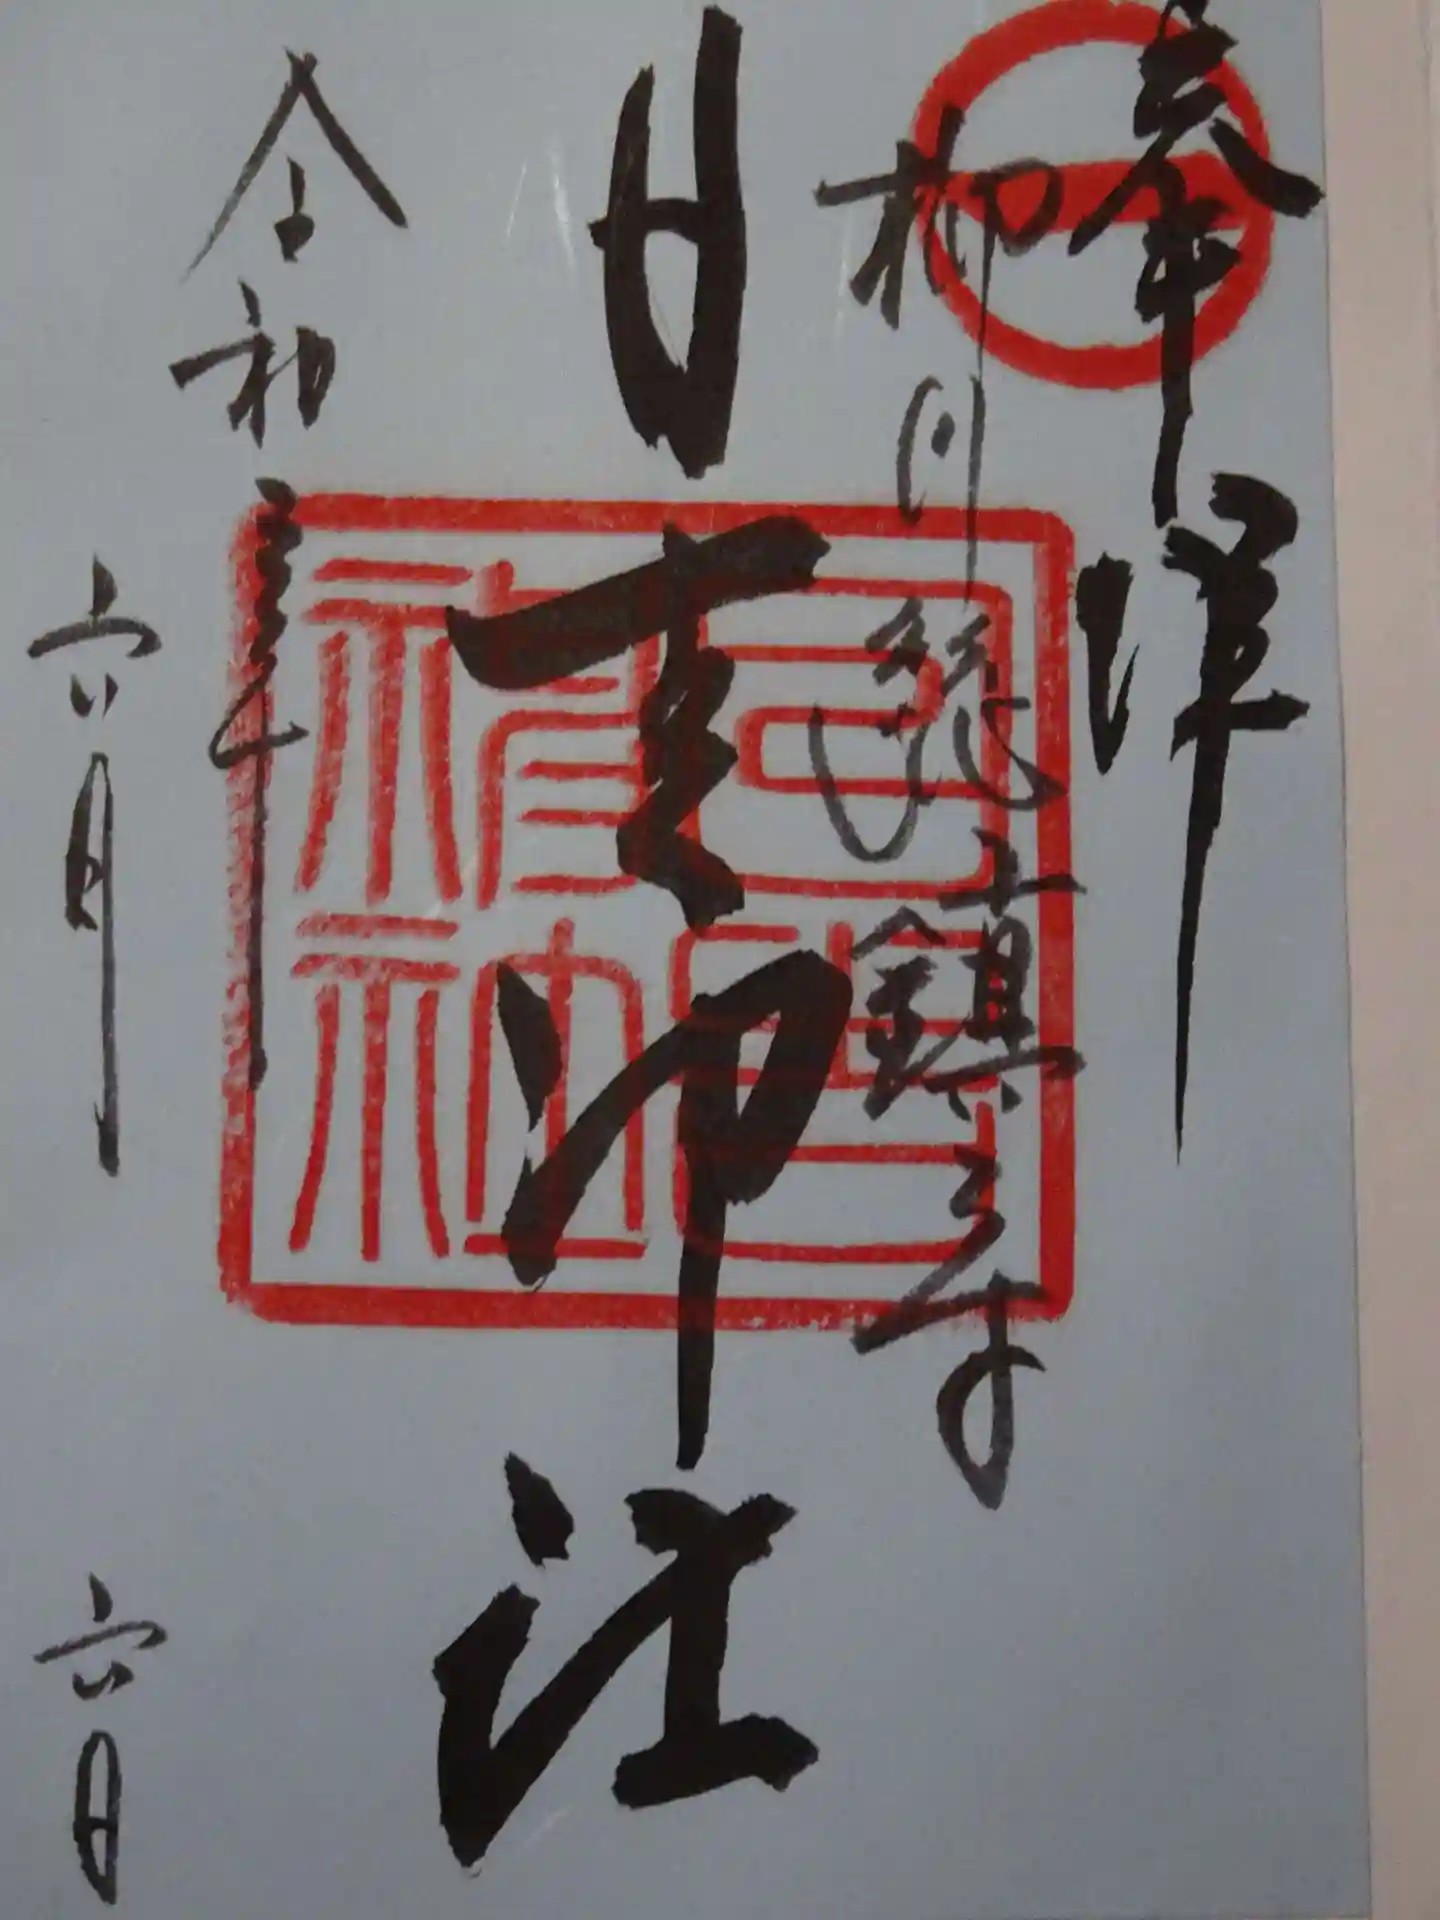 奉拝
柳川総鎮守
日吉神社
令和三年
六月六日